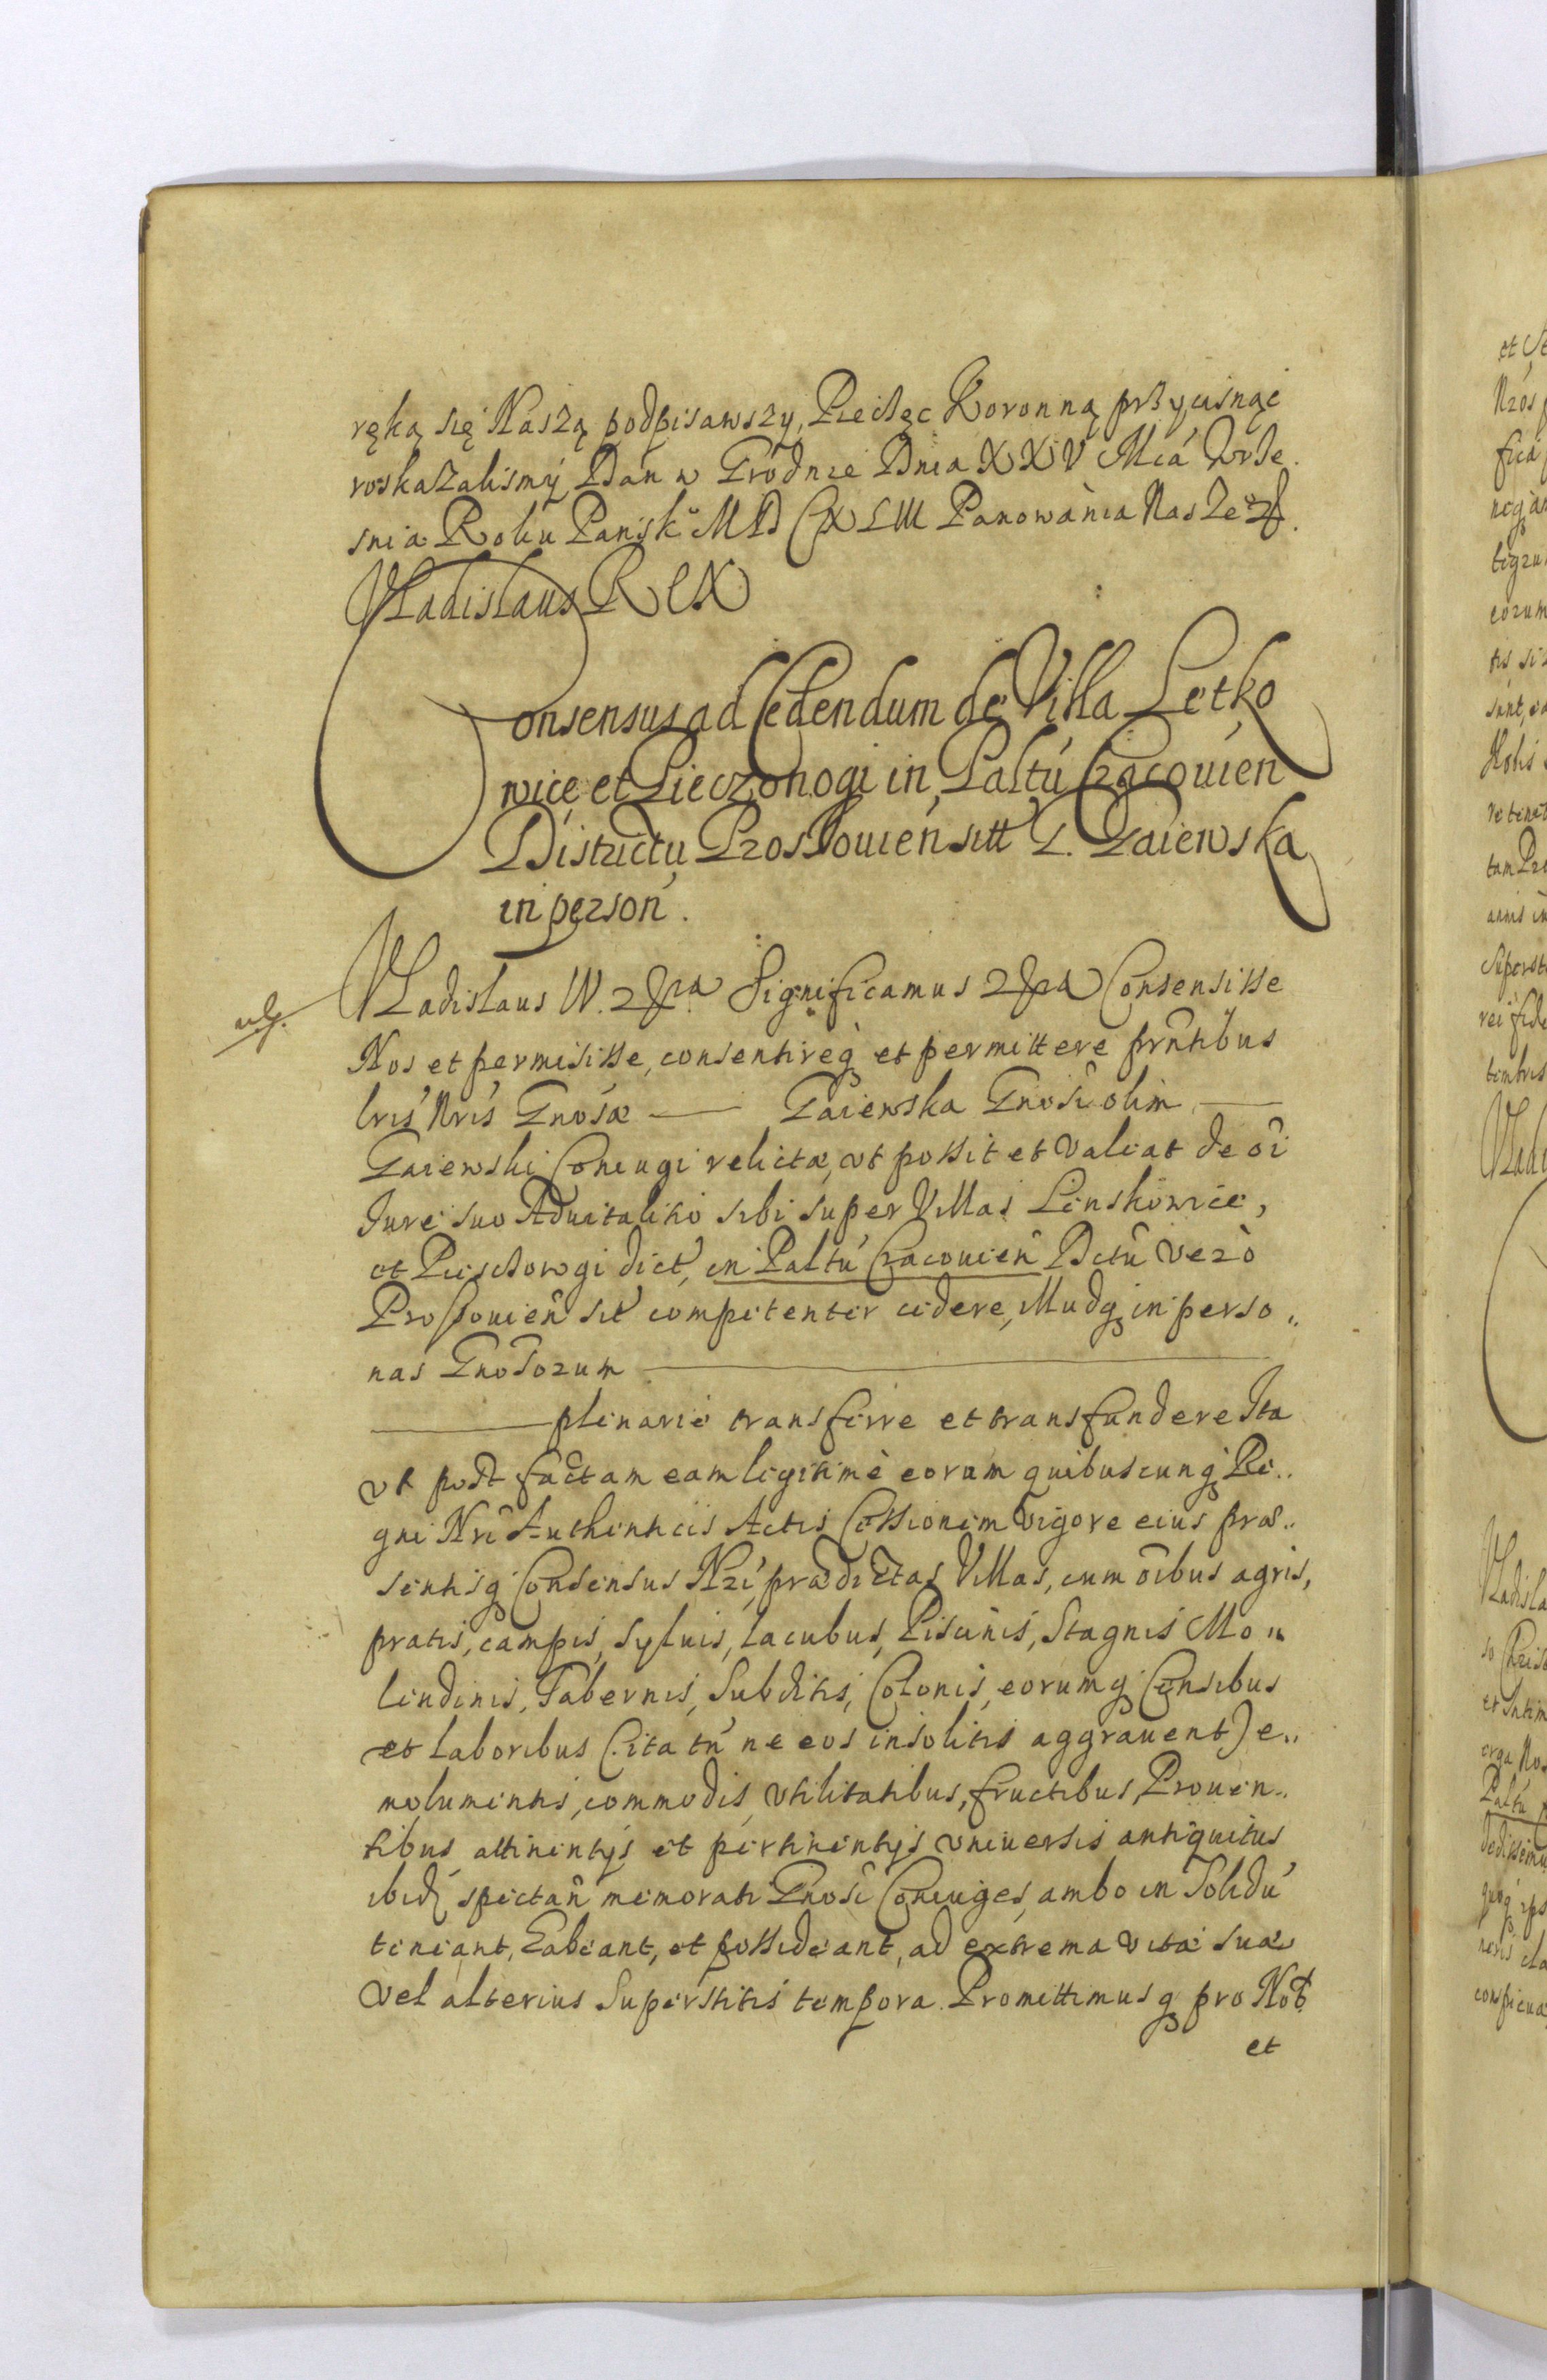 ręką się Naszą podpisawszy, Pieczęc Koronną przycisnąć
roskazalismy Dan w Grodnie Dnia XXV Mca Wrze
snia Roku Pansk° MDCXLIII Panowania Nasze
Vladislaus REX
Consensus ad Cedendum de Villa Letko
wice et Pieczonogi in Paltu Cracouien
Districtu Prossouien sitt G. Gaiewska
in person.
Vladislaus IV. Significamus Consensisse
Nos et permisisse, consentireq et permittere prntibus
lris Nris Gnosæ — Gaiewska Gnosi olim —
Gaiewski Coniugi relictæ, vt possit et valeat de oi
Jure suo Aduitalitio sibi super Villas Linskowice,
et dict, in Paltu Cracouien Dctu verò
Prossouien sit competenter cedere, Illudq in perso„
nas Gnosorum —
— plenarie transferre et transfundere Ita
vt post factam eam legitimè eorum quibuscunq Re„
gni Nri Authenticis Actis Cessionem Vigore eius præ„
sentisq Consensus Nri prædictas Villas, cum oibus agris,
pratis, campis, Syluis, lacubus, Piscinis, Stagnis Mo„
lendinis, Tabernis, Subditis, Colonis, eorumq Censibus
et laboribus (ita tn ne eos insolitis aggrauent) e„
molumentis, commodis, vtilitatibus, fructibus, Prouen„
tibus attinentijs et pertinentijs vniuersis antiquitus
ibid spectan memorati Gnosi Coniuges, ambo in Solidu
teneant, habeant, et possideant, ad extrema vitæ suæ
vel alterius Superstitis tempora. Promittimusq pro Nob
et